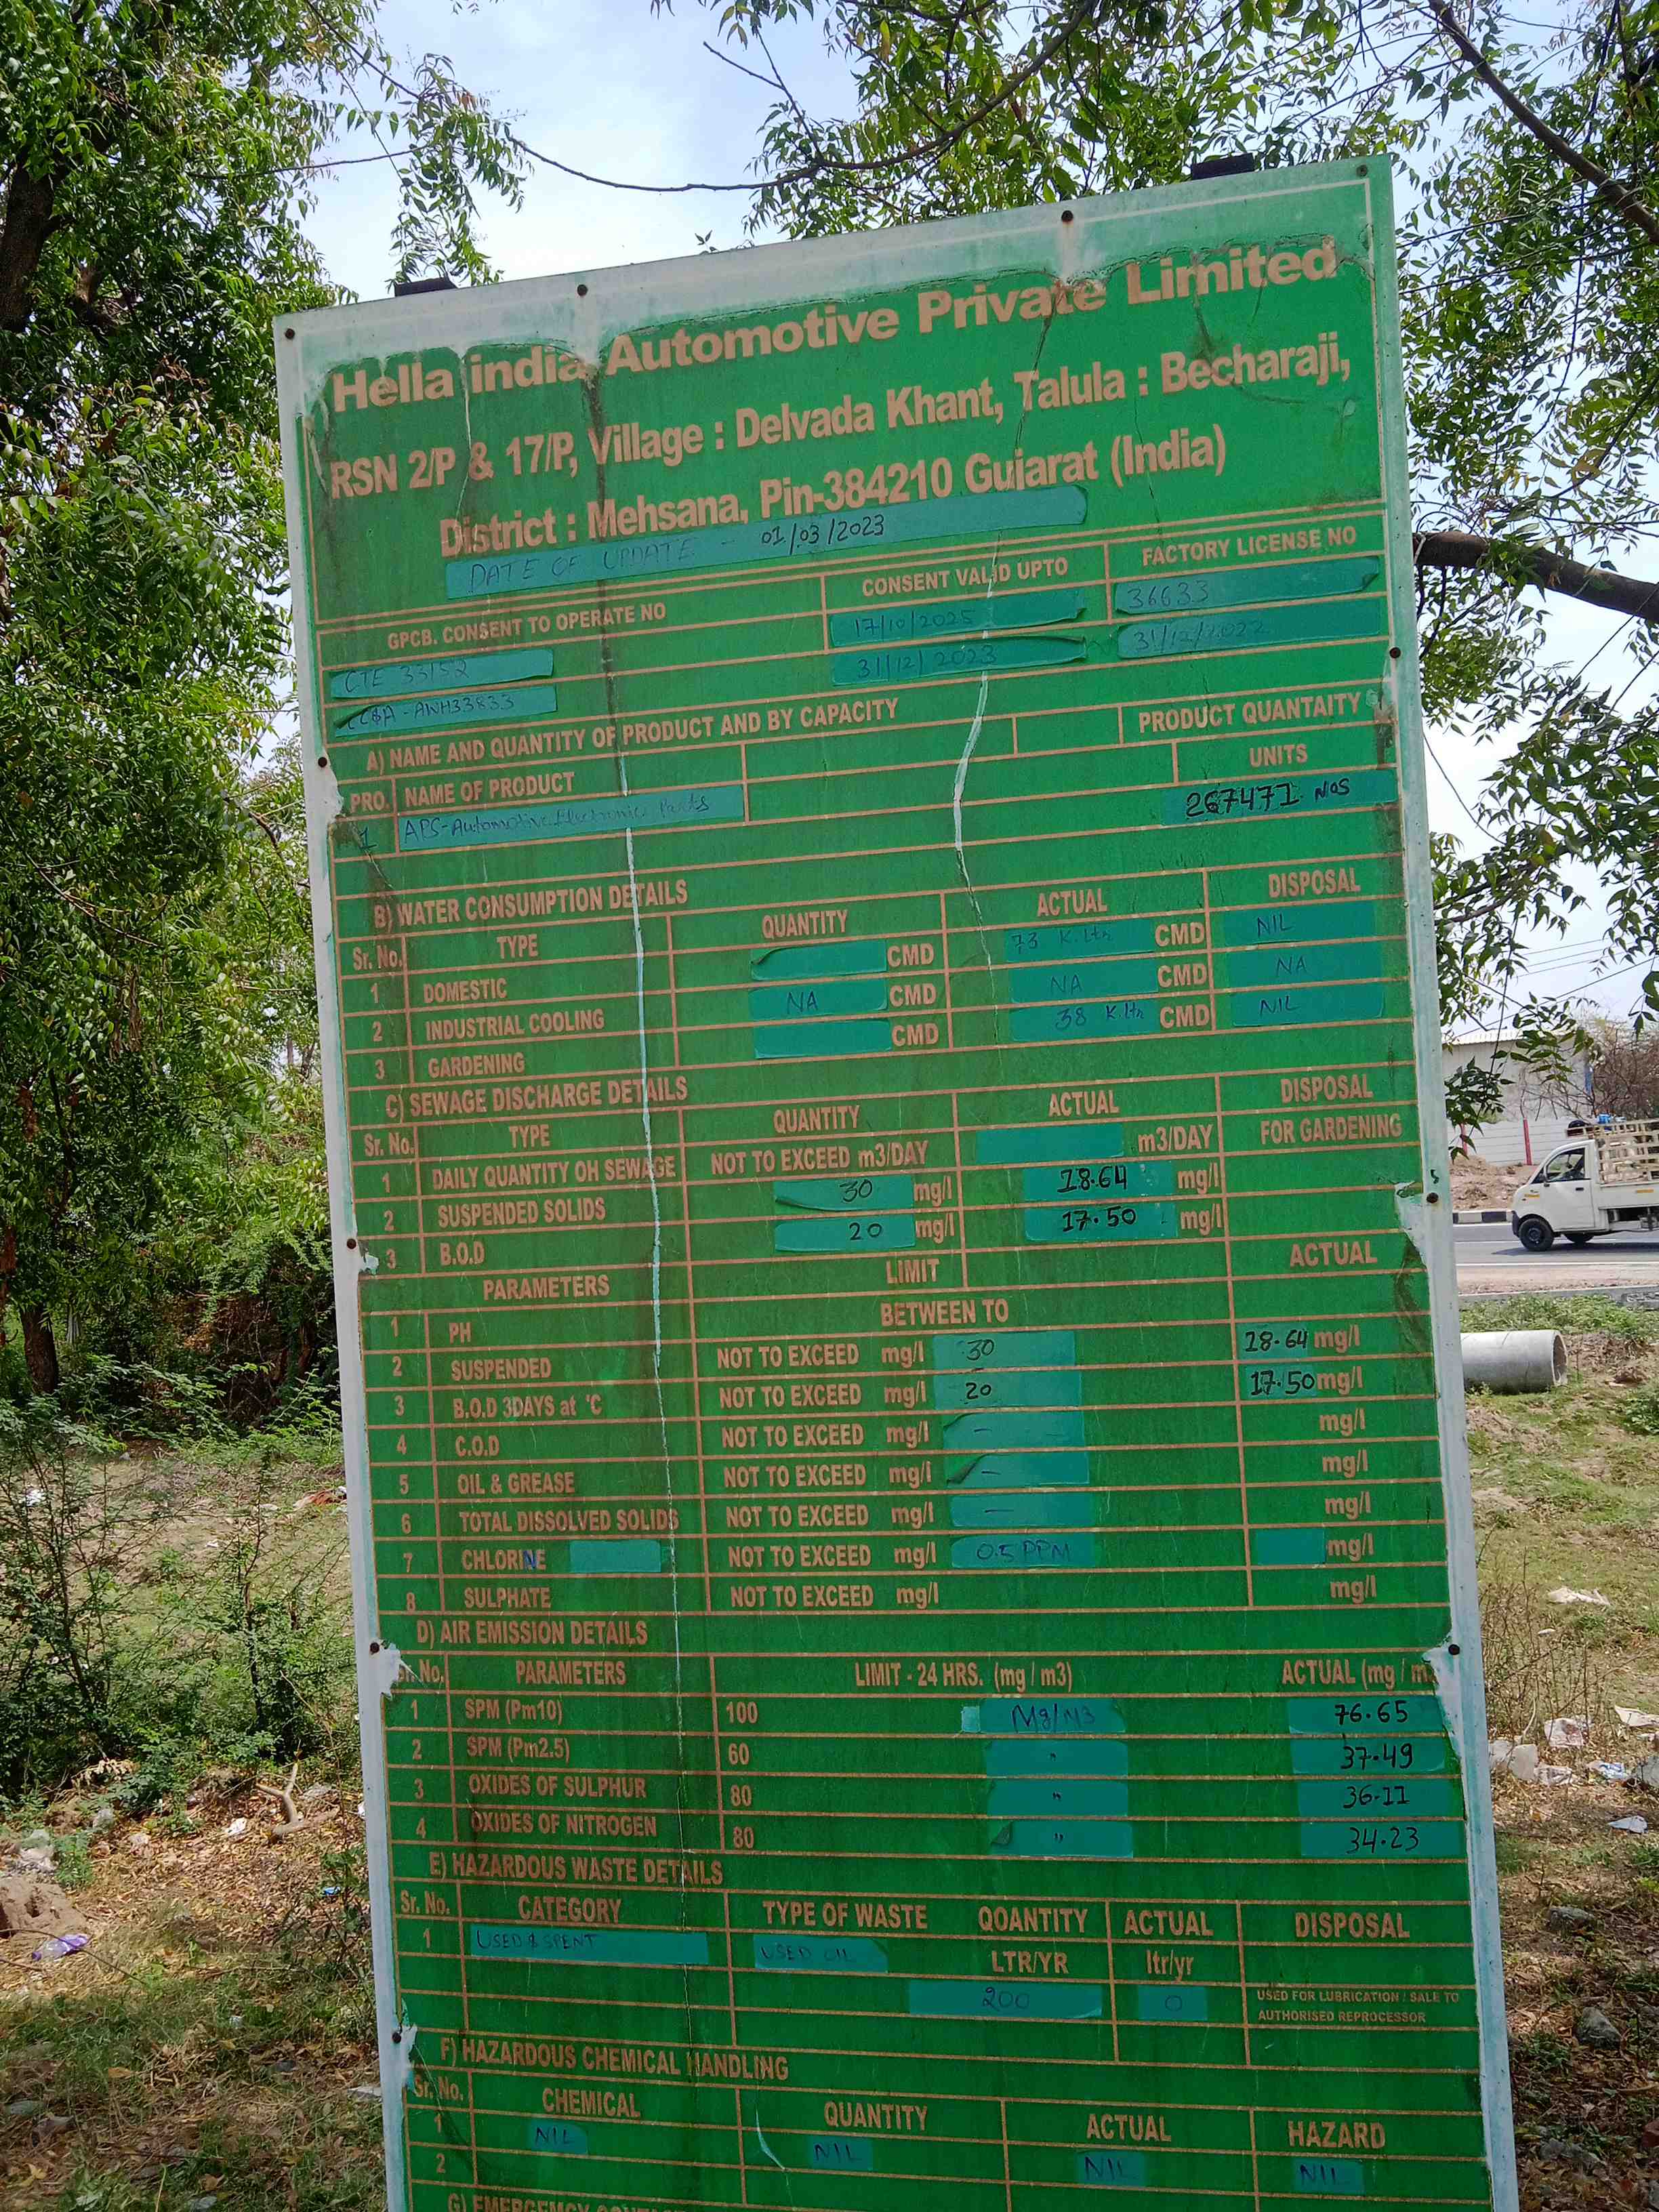 Hella india Automotive Private Limited
RSN 2/P & 17/P, Village : Delvada Khant, Talula : Becharaji,
District : Mehsana, Pin-384210 Gujarat (India)
DATE OF UPDATE - 01/03/2023
GPCB. CONSENT TO OPERATE NO CONSENT VALID UPTO FACTORY LICENSE NO
CTE 33152 17/10/2025 36633
CC&A - AWH33833 31/12/2023 31/12/2022
A) NAME AND QUANTITY OF PRODUCT AND BY CAPACITY PRODUCT QUANTAITY
PRO. NAME OF PRODUCT UNITS
1 APS-Automotive Electronic Parts 267471 NOS
B) WATER CONSUMPTION DETAILS
Sr. No. TYPE QUANTITY ACTUAL DISPOSAL
1 DOMESTIC CMD 73 K.ltr CMD NIL
2 INDUSTRIAL COOLING NA CMD NA CMD NA
3 GARDENING CMD 38 K.ltr CMD NIL
C) SEWAGE DISCHARGE DETAILS
Sr. No. TYPE QUANTITY ACTUAL DISPOSAL
1 DAILY QUANTITY OH SEWAGE NOT TO EXCEED m3/DAY m3/DAY FOR GARDENING
2 SUSPENDED SOLIDS 30 mg/l 18.64 mg/l
3 B.O.D 20 mg/l 17.50 mg/l
PARAMETERS LIMIT ACTUAL
1 PH BETWEEN TO
2 SUSPENDED NOT TO EXCEED mg/l 30 18.64 mg/l
3 B.O.D 3DAYS at °C NOT TO EXCEED mg/l 20 17.50 mg/l
4 C.O.D NOT TO EXCEED mg/l - mg/l
5 OIL & GREASE NOT TO EXCEED mg/l - mg/l
6 TOTAL DISSOLVED SOLIDS NOT TO EXCEED mg/l - mg/l
7 CHLORINE NOT TO EXCEED mg/l 0.5 PPM mg/l
8 SULPHATE NOT TO EXCEED mg/l mg/l
D) AIR EMISSION DETAILS
Sr. No. PARAMETERS LIMIT - 24 HRS. (mg / m3) ACTUAL (mg / m
1 SPM (Pm10) 100 Mg/M3 76.65
2 SPM (Pm2.5) 60 " 37.49
3 OXIDES OF SULPHUR 80 " 36.11
4 OXIDES OF NITROGEN 80 " 34.23
E) HAZARDOUS WASTE DETAILS
Sr. No. CATEGORY TYPE OF WASTE QOANTITY ACTUAL DISPOSAL
1 USED & SPENT USED OIL LTR/YR ltr/yr
200 0 USED FOR LUBRICATION / SALE TO
AUTHORISED REPROCESSOR
F) HAZARDOUS CHEMICAL HANDLING
Sr. No. CHEMICAL QUANTITY ACTUAL HAZARD
1 NIL NIL NIL NIL
2